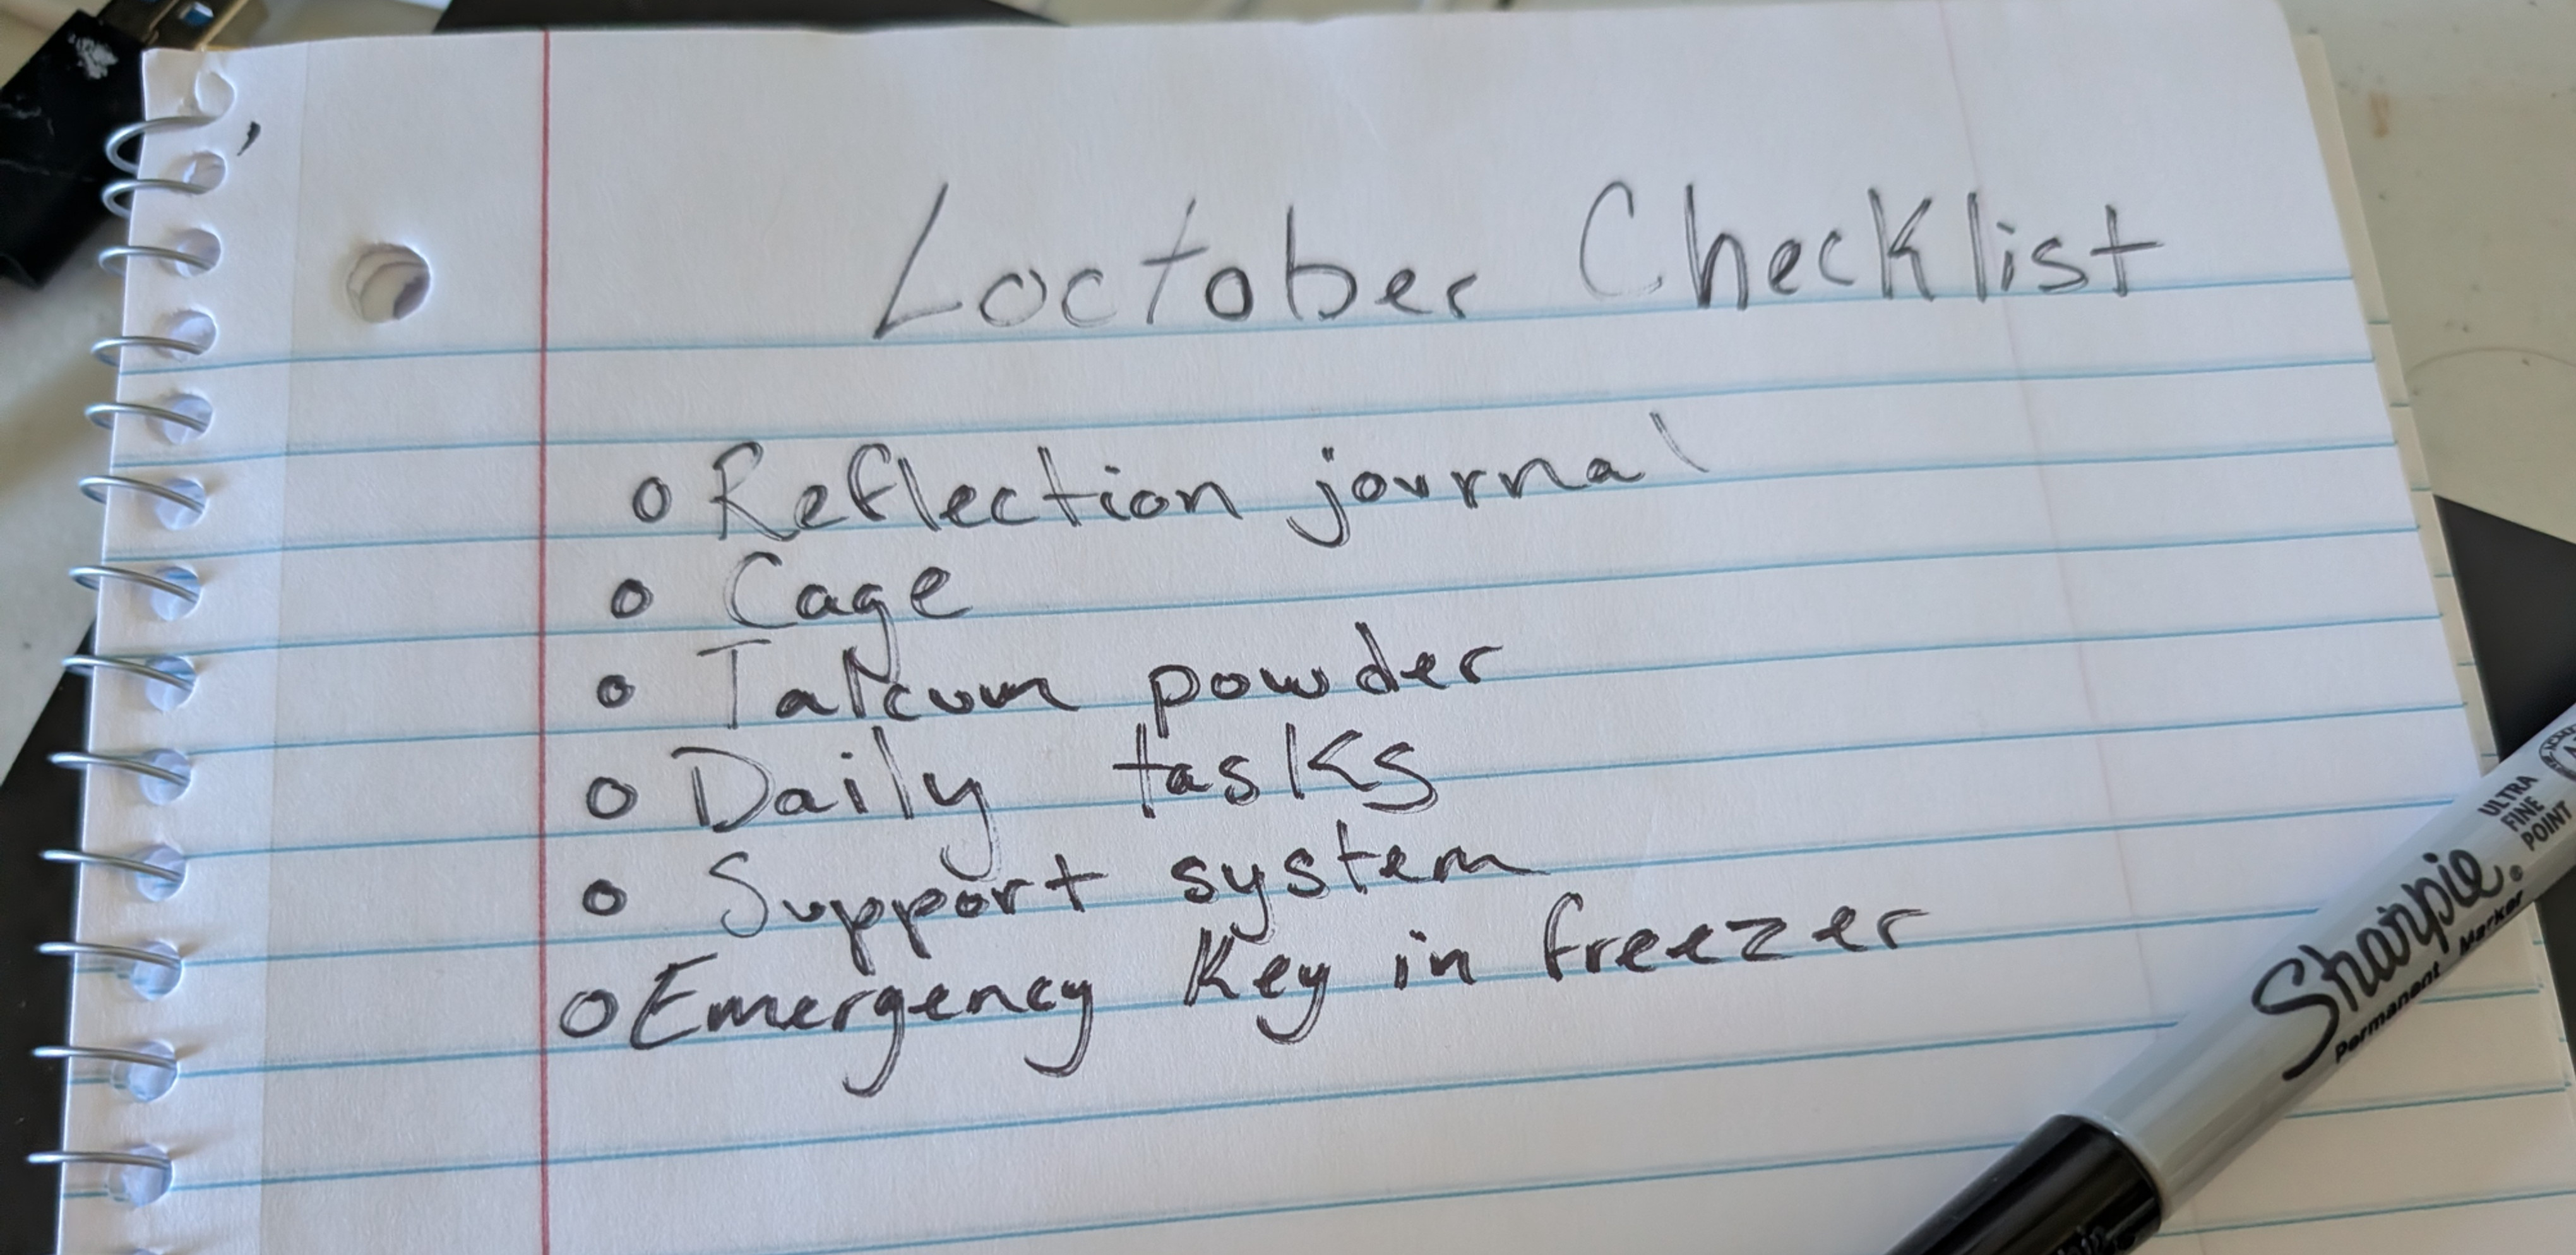 Loctober Checklist
o Reflection journal
o Cage
o Talcum powder
o Daily tasks
o Support system
o Emergency Key in freezer
Sharpie®
Permanent Marker
ULTRA
FINE
POINT